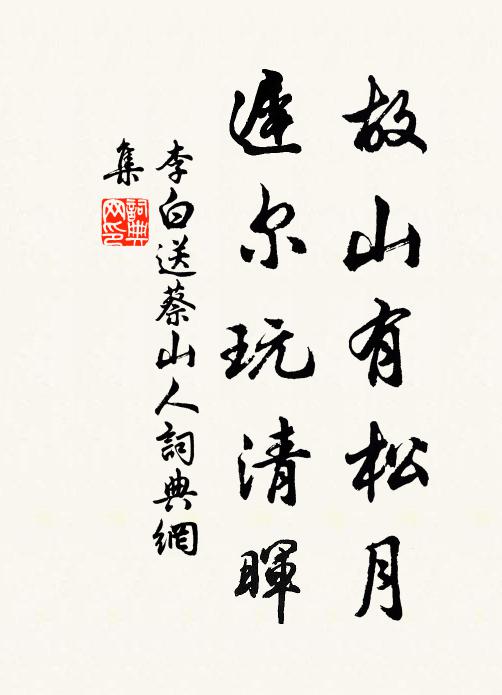 故山有松月
遲尔玩清暉
李白送蔡山人詞典網
集
詞典
网印